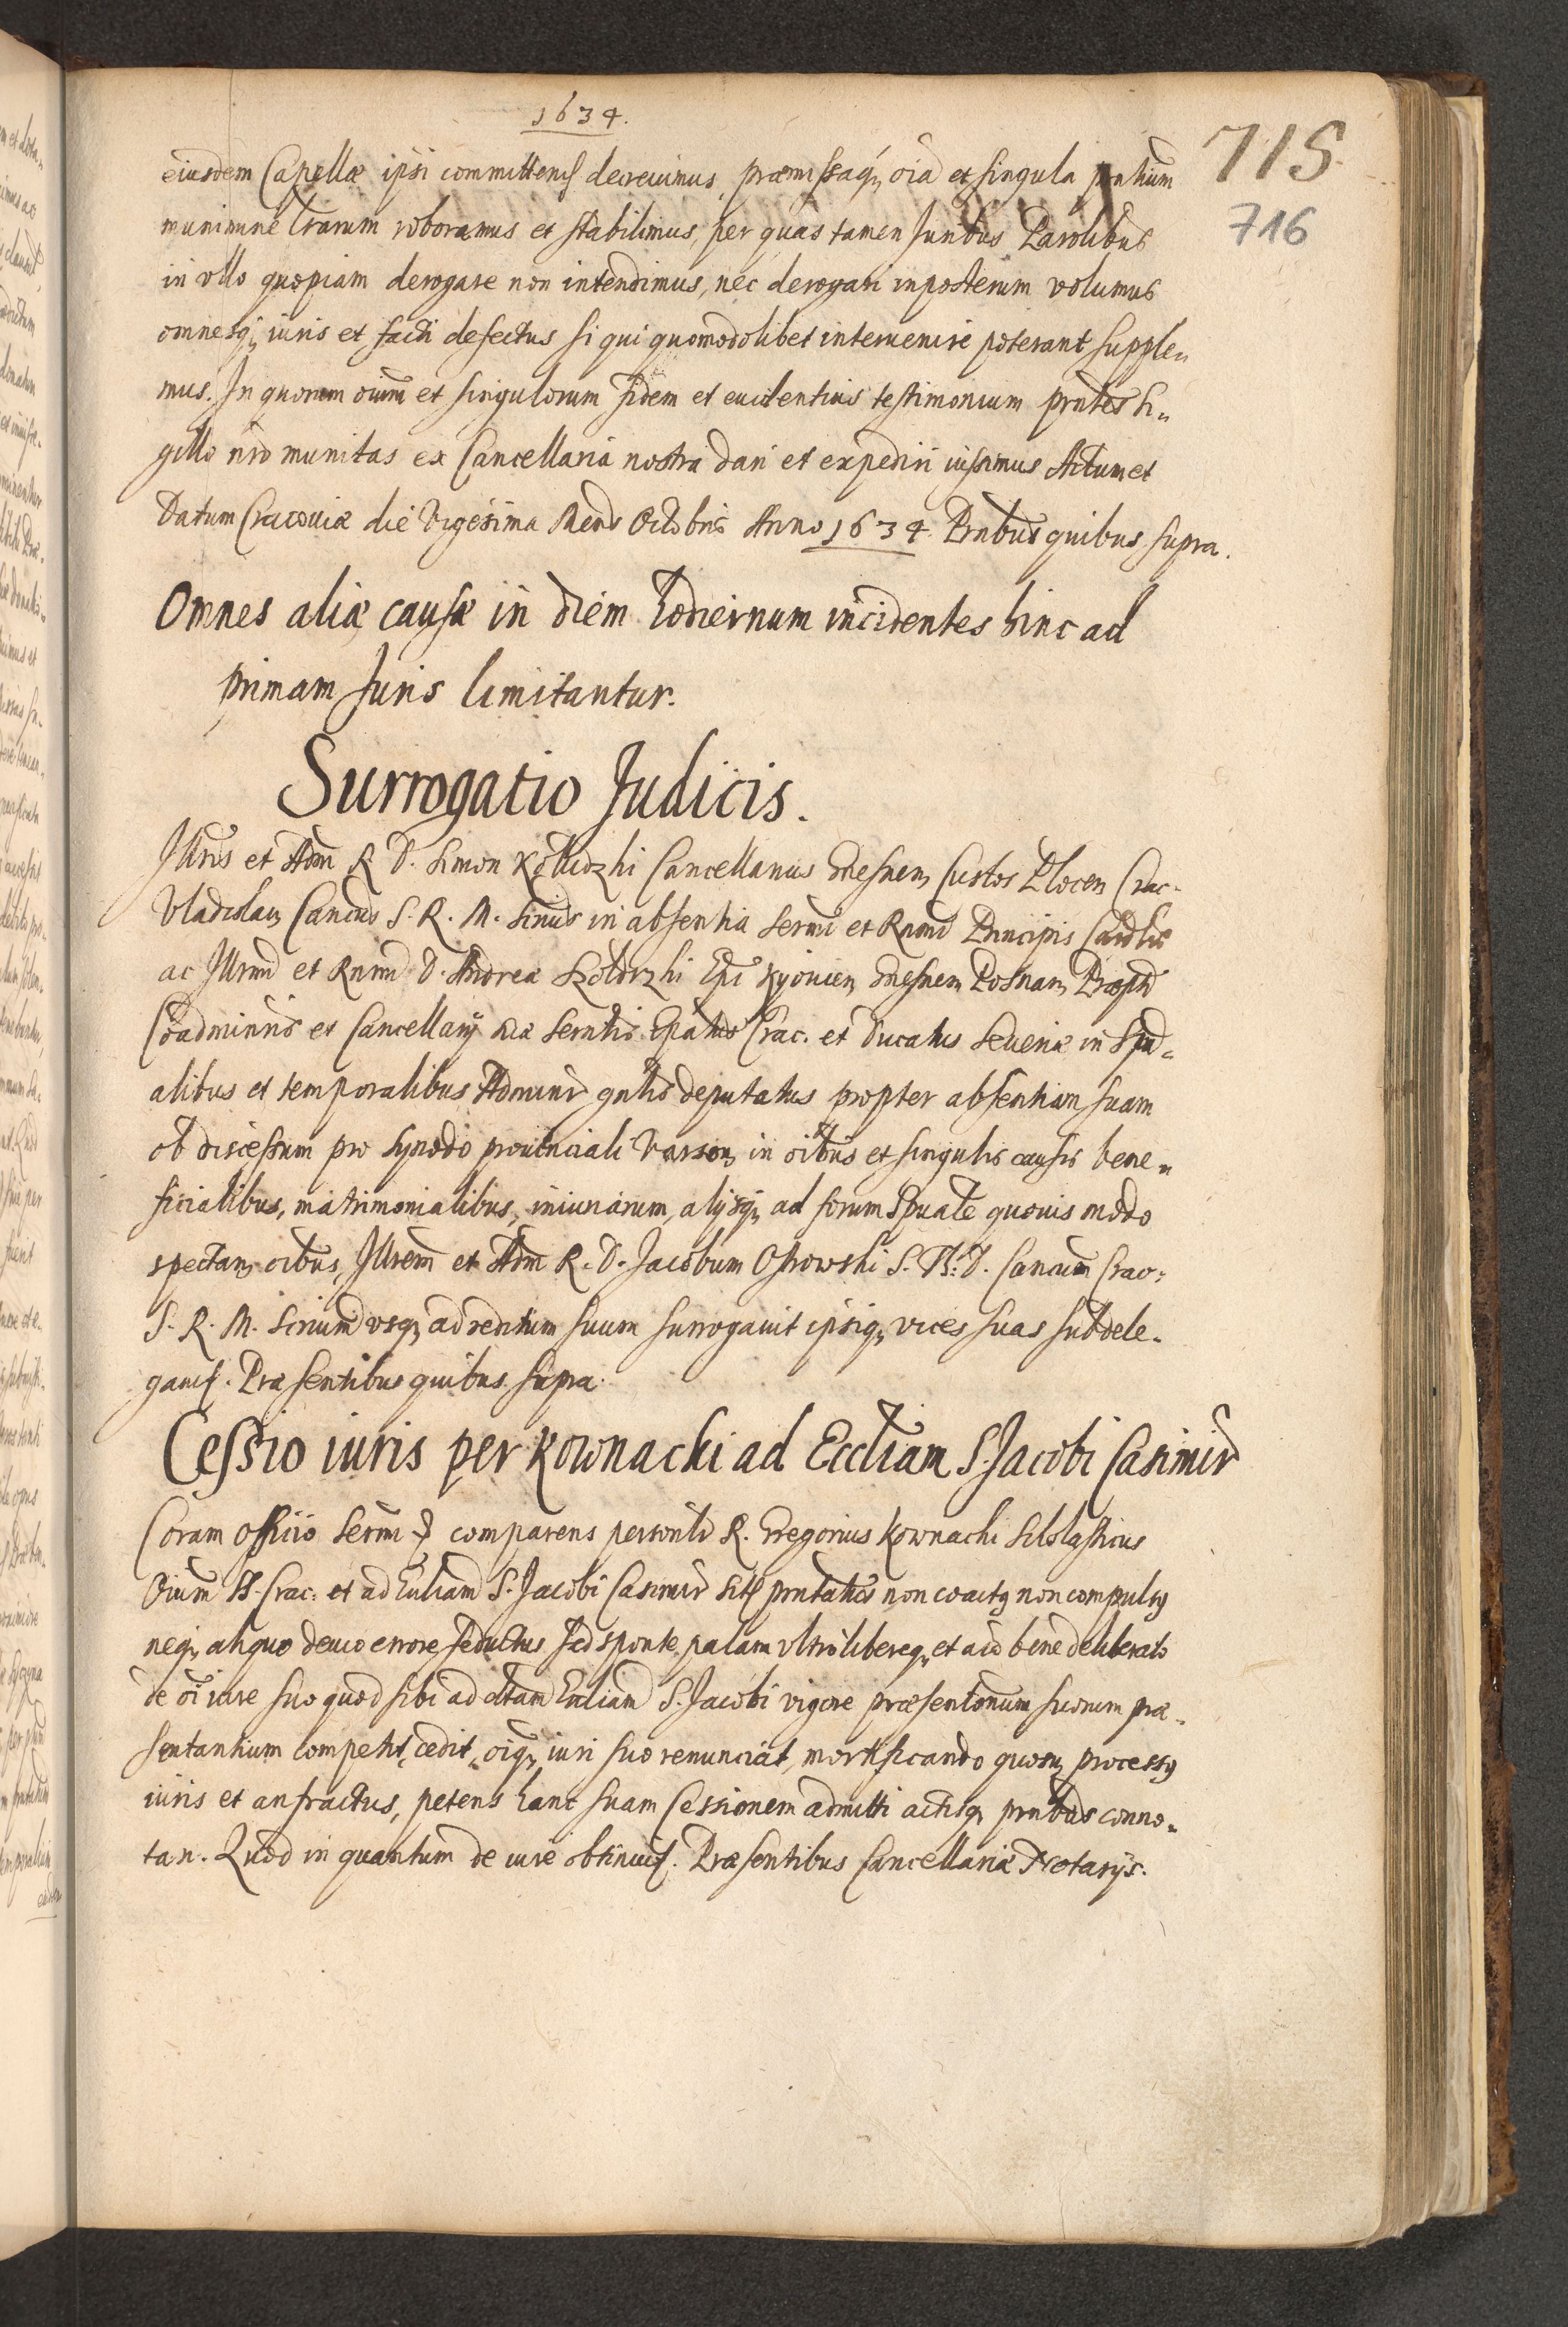 1634.
715
716
eiusdem Capellæ ipsi committen decreuimus, præmissaq, oia et singula pntium
munimine lrarum roboramus et stabilimus, per quas tamen Iuribus Parolibus
in vllo quopiam derogare non intendimus, nec derogari inposterum volumus
omnesq, iuris et facti defectus si qui quomodolibet interuenire poterant supple„
mus. In quorum oium et singulorum fidem et euidentius testimonium pntes si„
gillo nro munitas ex Cancellaria nostra dari et expediri iussimus Actum et
Datum Cracouiæ die Vigesima Mens Octobris Anno 1634. Pntbus quibus supra.
Omnes aliæ causæ in diem hodiernum incidentes hinc ad
primam Juris limitantur.
Surrogatio Judicis.
Illris et Adm R D. Simon Kołudzki Cancellarius Gnesnen, Custos Plocen Crac.
Vladislau, Cancus S. R. M. Srius in absentia Sermi et Rnmi Principis Caroli
ac Illrmi et Rnmi D. Andreæ Szołdrzki Epi Kyouien, Gnesnen Posnan, Præpti
Coadminris et Cancellarij suæ Serntis Epatus Crac. et Ducatus Seueriæ in Spu„
alibus et temporalibus Adminr gnlis deputatus propter absentiam suam
ob discessum pro synodo prouinciali Varsou, in oibus et singulis causis bene„
ficialibus, matrimonialibus, iniuriarum, alijsq, ad forum Spuale quouis modo
spectan, oibus, Illrem et Adm R. D. Jacobum Ostrowski S. Th. D. Cancum Crac:
S. R. M. Srium vsq, ad reditum suum surrogauit ipsiq, vices suas subdele„
gauit. Præsentibus quibus supra.
Cessio iuris per Kownacki ad Eccliam S. Jacobi Casimir
Coram Officio Sermi comparens personlr R. Gregorius Kownacki Scholasticus
Oium SS. Crac. et ad Eccliam S. Jacobi Casimir sit pntatus non coactus non compulsus
neq, aliquo deuio errore seductus sed sponte, palam vltro libereq, et aio bene deliberato
de oi iure suo quod sibi ad dtam Eccliam S. Jacobi vigore præsentonum suorum præ„
sentantium competit, cedit, oiq, iuri suo renunciat, mortificando quosu, processus
iuris et anfractus, petens hanc suam Cessionem admitti actisq, pntbus conno„
tari. Quod in quantum de iure obtinuit. Præsentibus Cancellariæ Notarijs.